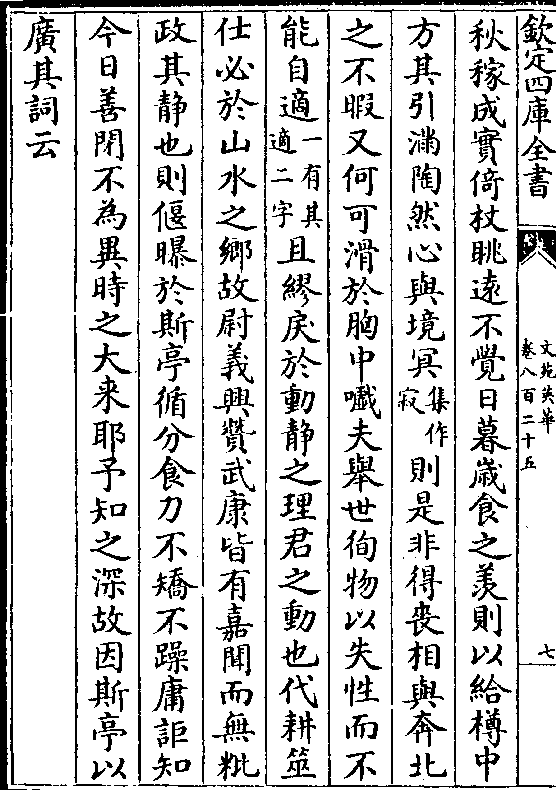 欽定四庫全書
文苑英華
卷八百二十五
七
秋稼成實倚杖眺遠不覺日暮歳食之羨則以給樽中
方其引滿陶然心與境冥集作寂則是非得喪相與奔北
之不暇又何可滑於胸中噫夫舉世徇物以失性而不
能自適一有其適二字且繆戾於動静之理君之動也代耕筮
仕必於山水之鄉故尉義興贊武康皆有嘉聞而無粃
政其静也則偃曝於斯亭循分食力不矯不躁庸詎知
今日善閉不為異時之大来耶予知之深故因斯亭以
廣其詞云